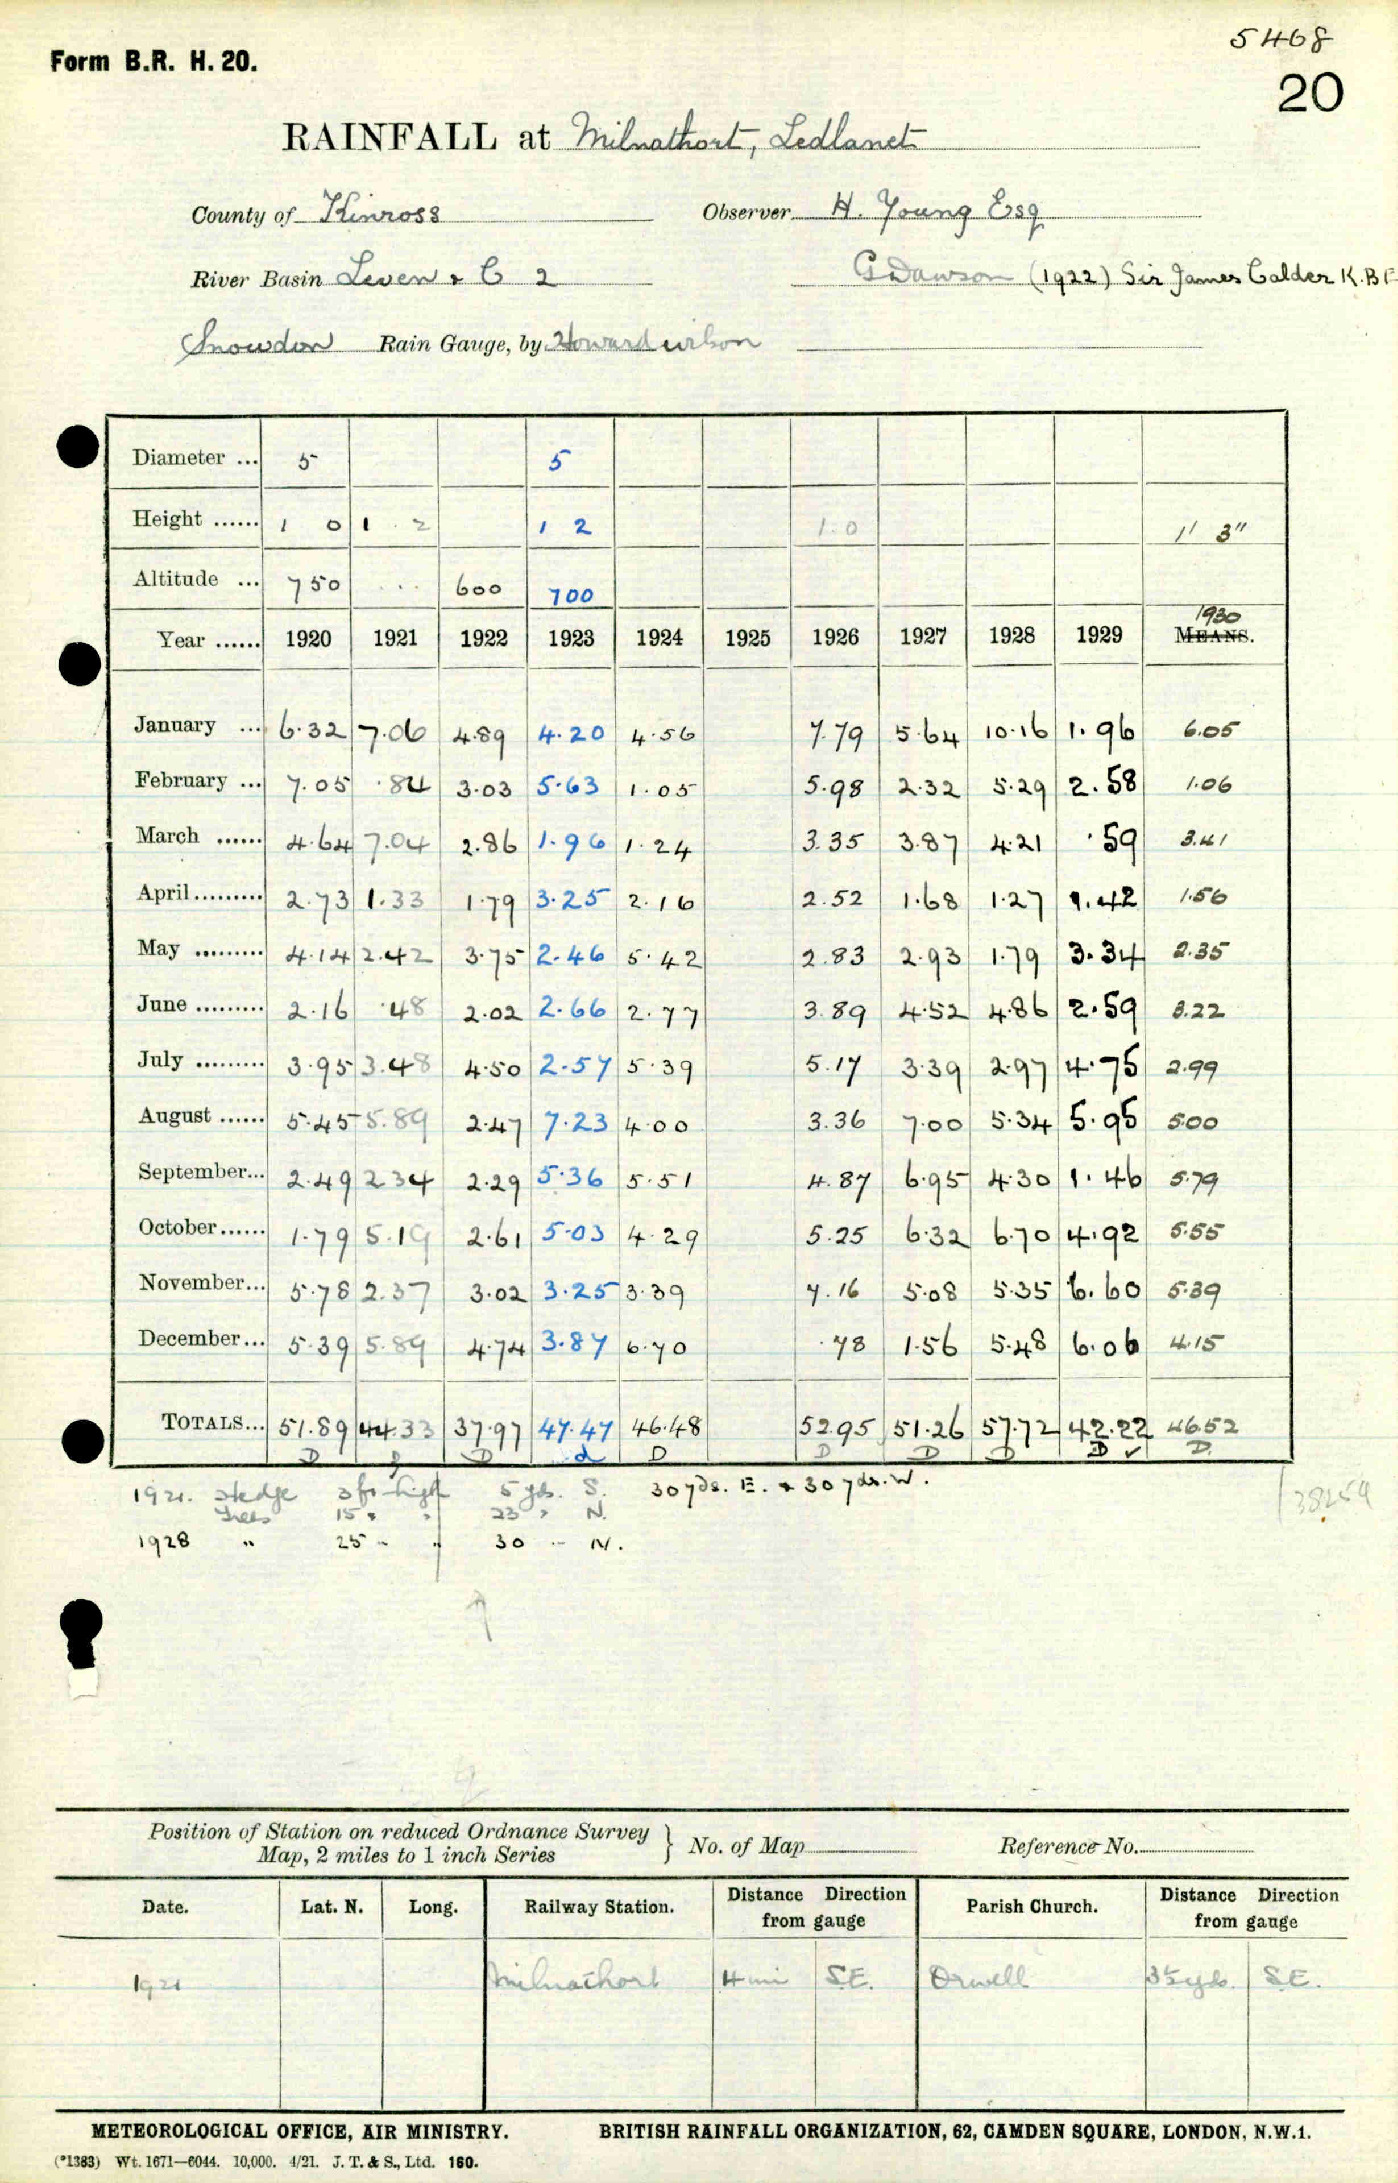 5468
Form B.R. H. 20.
20
RAINFALL at Milnathort, Ledlanet
County of Kinross Observer H. Young Esq
River Basin Leven & C 2 G Dawson (1922) Sir James Calder K.B.E
Snowdon Rain Gauge, by Howard wilson
Diameter ... 5 5
Height ...... 1 0 1 2 1 2 1.0 1' 3"
Altitude ... 750 ... 600 700
1930
Year ...... 1920 1921 1922 1923 1924 1925 1926 1927 1928 1929 MEANS.
January ... 6.32 7.06 4.89 4.20 4.56 7.79 5.64 10.16 1.96 6.05
February ... 7.05 .84 3.03 5.63 1.05 5.98 2.32 5.29 2.58 1.06
March ...... 4.64 7.04 2.86 1.96 1.24 3.35 3.87 4.21 .59 3.41
April ......... 2.73 1.33 1.79 3.25 2.16 2.52 1.68 1.27 1.42 1.56
May ......... 4.14 2.42 3.75 2.46 5.42 2.83 2.93 1.79 3.34 2.35
June ......... 2.16 .48 2.02 2.66 2.77 3.89 4.52 4.86 2.59 3.22
July ......... 3.95 3.48 4.50 2.57 5.39 5.17 3.39 2.97 4.75 2.99
August ...... 5.45 5.89 2.47 7.23 4.00 3.36 7.00 5.34 5.95 5.00
September... 2.49 2.34 2.29 5.36 5.51 4.87 6.95 4.30 1.46 5.79
October ...... 1.79 5.19 2.61 5.03 4.29 5.25 6.32 6.70 4.92 5.55
November... 5.78 2.37 3.02 3.25 3.39 7.16 5.08 5.35 6.60 5.39
December... 5.39 5.89 4.74 3.87 6.70 .78 1.56 5.48 6.06 4.15
TOTALS... 51.89 44.33 37.97 47.47 46.48 52.95 51.26 57.72 42.22 46.52
D D d D D D D D ✓ D
1921. Hedge 3 ft high 5 yds. S. 30 yds. E. & 30 yds. W.
Trees 15 " " 23 " N.
1928 " 25 " " 30 " N.
38254
Position of Station on reduced Ordnance Survey
Map, 2 miles to 1 inch Series } No. of Map Reference No.
Date. Lat. N. Long. Railway Station. Distance Direction from gauge Parish Church. Distance Direction from gauge
1921 Milnathort 4 mi S.E. Orwell 35 yds. S.E.
METEOROLOGICAL OFFICE, AIR MINISTRY. BRITISH RAINFALL ORGANIZATION, 62, CAMDEN SQUARE, LONDON, N.W.1.
(*1383) Wt. 1671—6044. 10,000. 4/21. J. T. & S., Ltd. 160.